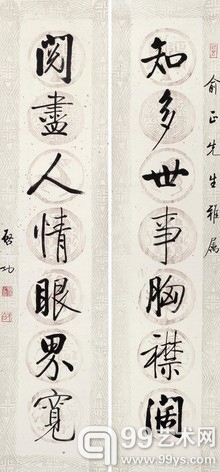 俞正先生雅属
知多世事胸襟阔
阅尽人情眼界宽
启功
99艺术网
www.99ys.com